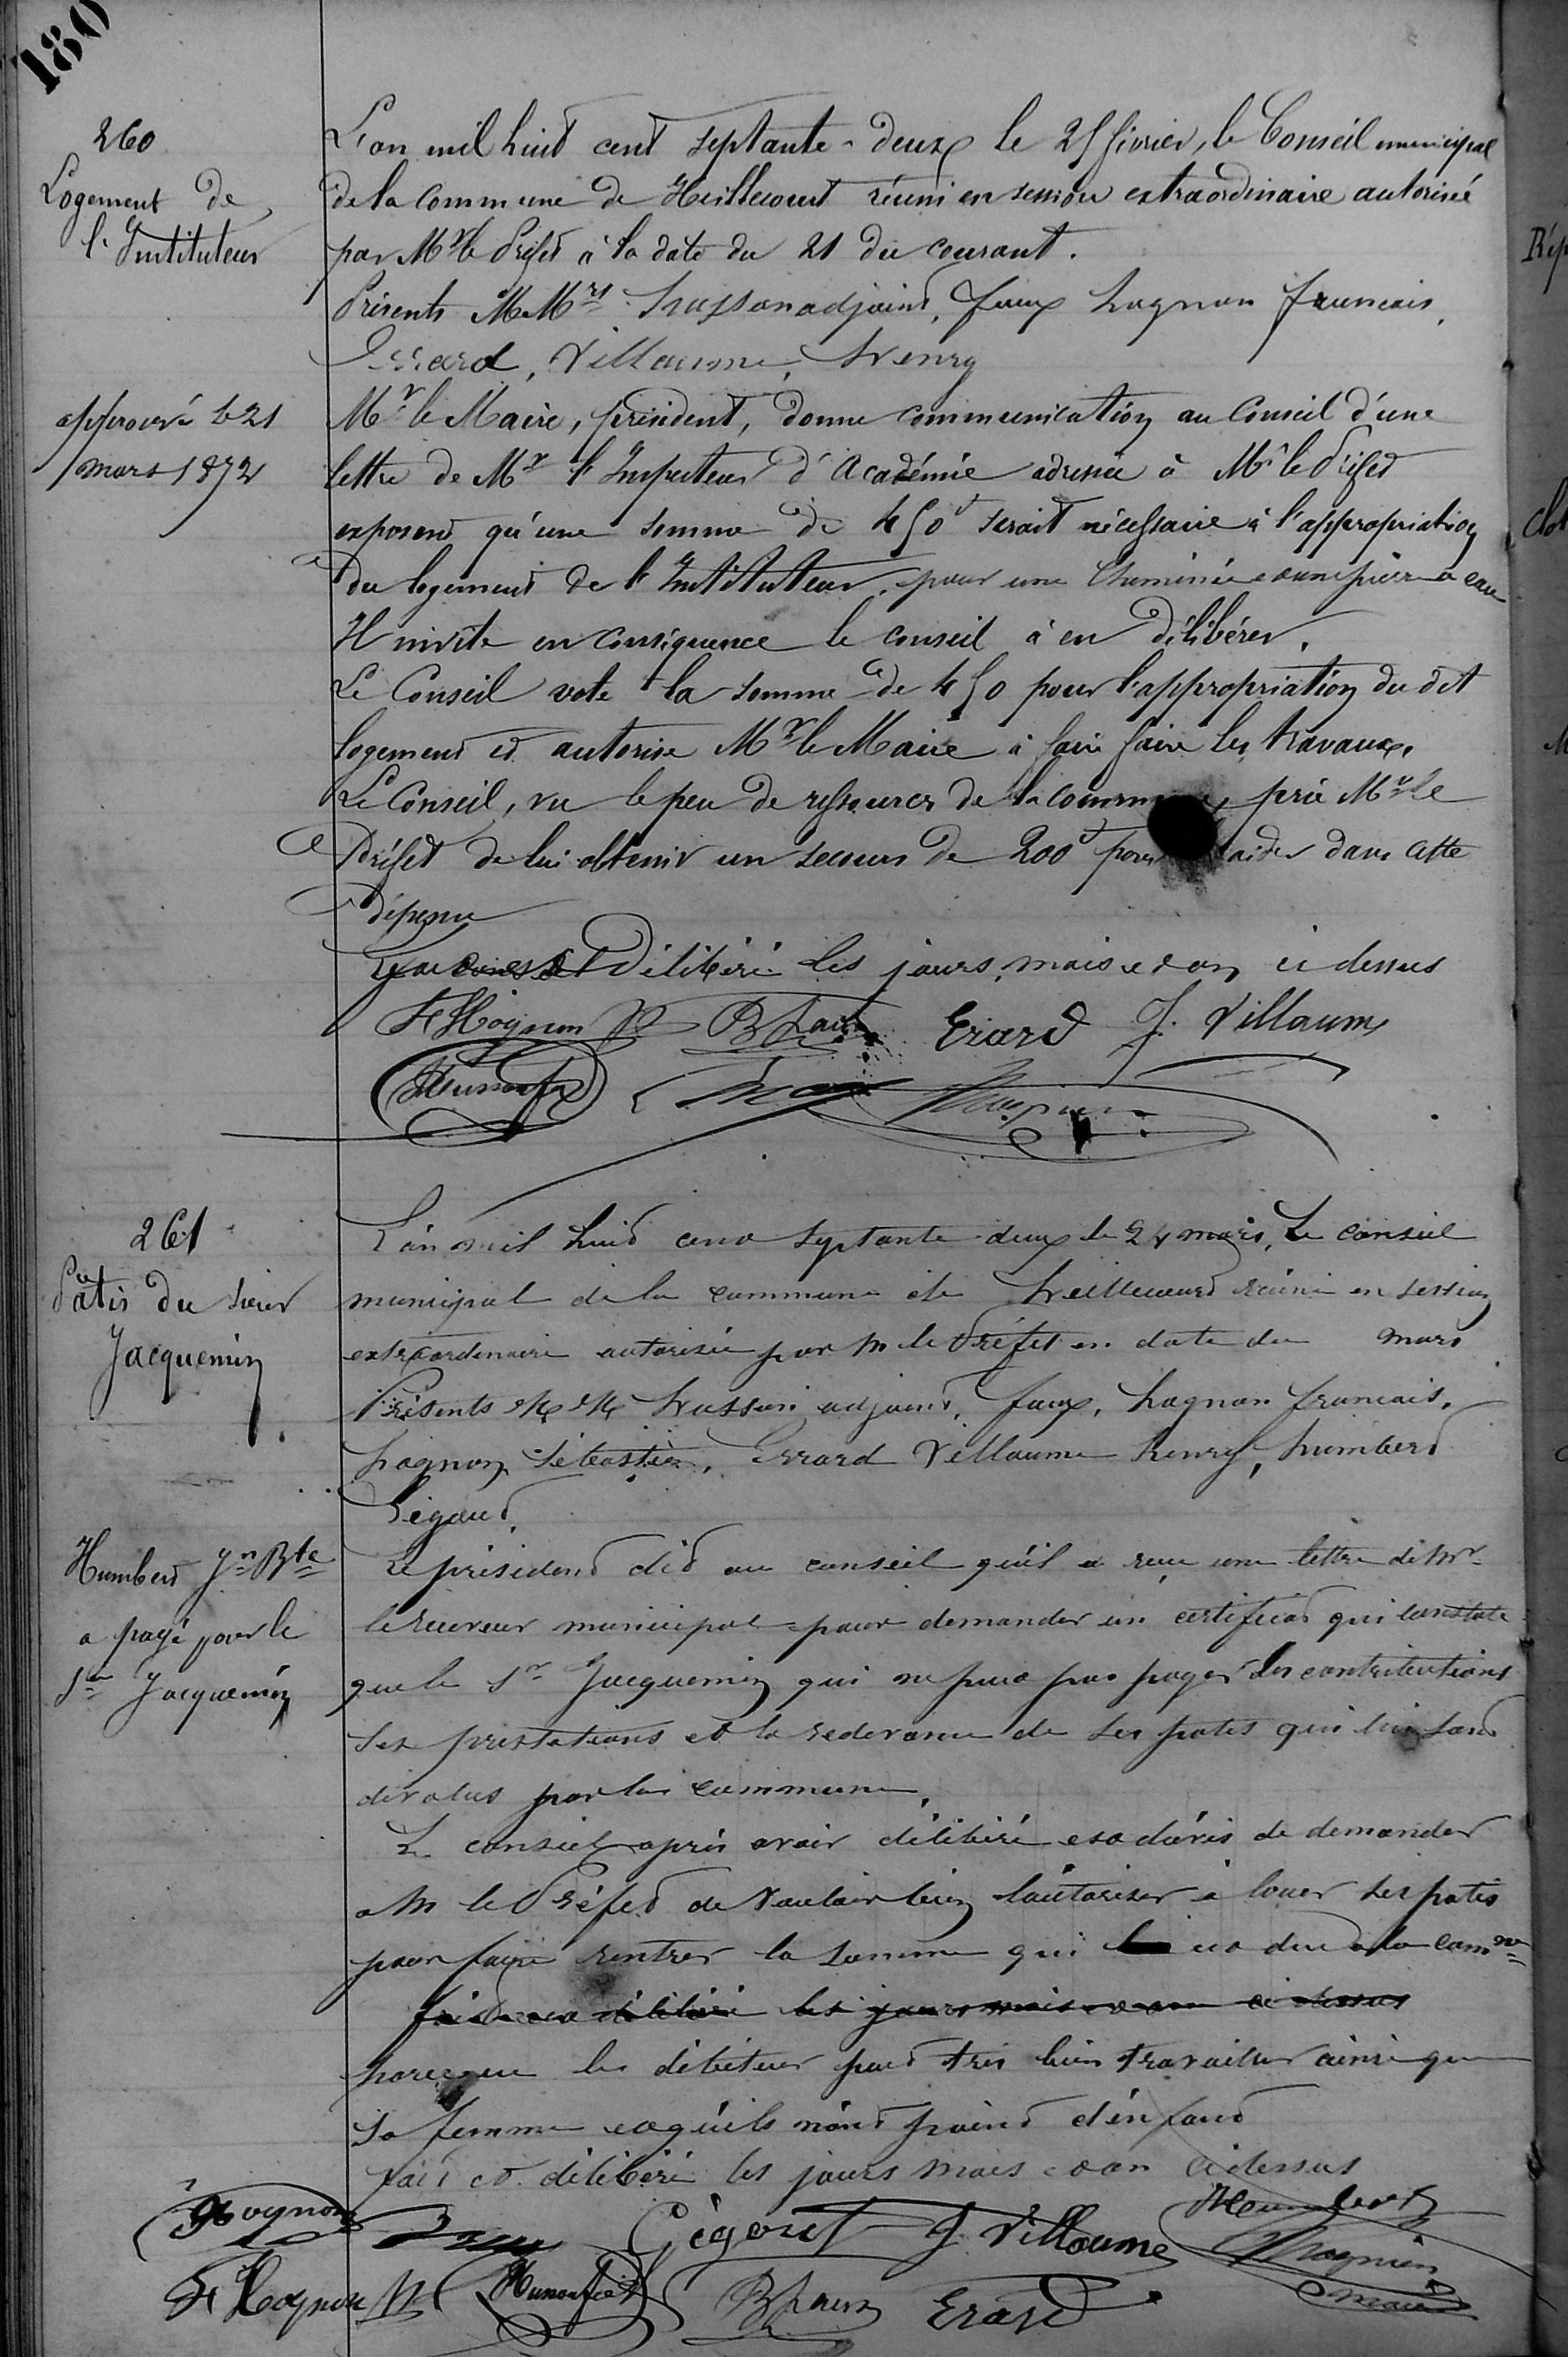 180
260
Logement de
l'Instituteur
L'an mil huit cent septante-deux le 25 février, le Conseil municipal
de la commune de Huillecourt réuni en session extraordinaire autorisée
par Mr le Préfet à la date du 21 du courant.
Présents MMrs Husson adjoint, Faux hognon francais,
Errard, Villaume, henry
approuvé le 21
mars 1872
Mr le Maire, président, donne communication au Conseil d'une
lettre de Mr l'Inspecteur d'Académie adressée à Mr le Préfet
exposant qu'une somme de 450f serait nécessaire à l'appropriation
du logement de l'Instituteur, pour une Cheminée et une pierre à eau
Il invite en conséquence le conseil à en délibérer.
Le Conseil vote la somme de 450 pour l'appropriation du dit
logement et autorise Mr le Maire à faire faire les travaux.
Le Conseil, vu le peu de ressources de la commune, prie Mr le
Préfet de lui obtenir un secours de 200f pour aider dans cette
dépense
Délibéré les jours, mois et an ci dessus
F Hognon Erard J. Villaume
Husson
261
Pâtis du sieur
Jacquemin
L'an mil huit cent septante deux le 24 mars, Le conseil
municipal de la commune de huillecourt réuni en session
extraordinaire autorisée par M le Préfet en date du mars
Présents MM husson adjoint, faux, hognon francais,
hognon Sébastien, Errard Villaume henry, humbert
Légaud.
Humbert Jn Bte
a payé pour le
Sr Jacquemin
Le président dit au conseil qu'il a reçu une lettre de Mr
le receveur municipal pour demander un certificat qui constate
que le Sr Jacquemin qui ne peut pas payer les contributions
ses prestations et la redevance de ses patis qui lui sont
dévolus par la commune.
Le conseil après avoir délibéré est d'avis de demander
a M le Préfet de vouloir bien l'autoriser à louer ses patis
pour faire rentrer la somme qui est due a la comne
fait et délibéré les jours mois et an ci dessus
parceque le débiteur peut tres bien travailler ainsi que
sa femme et qu'ils n'ont point d'enfant
fait et délibéré les jours mois et an ci dessus
Hognon J Villaume Humbert
F Hognon Husson Erard